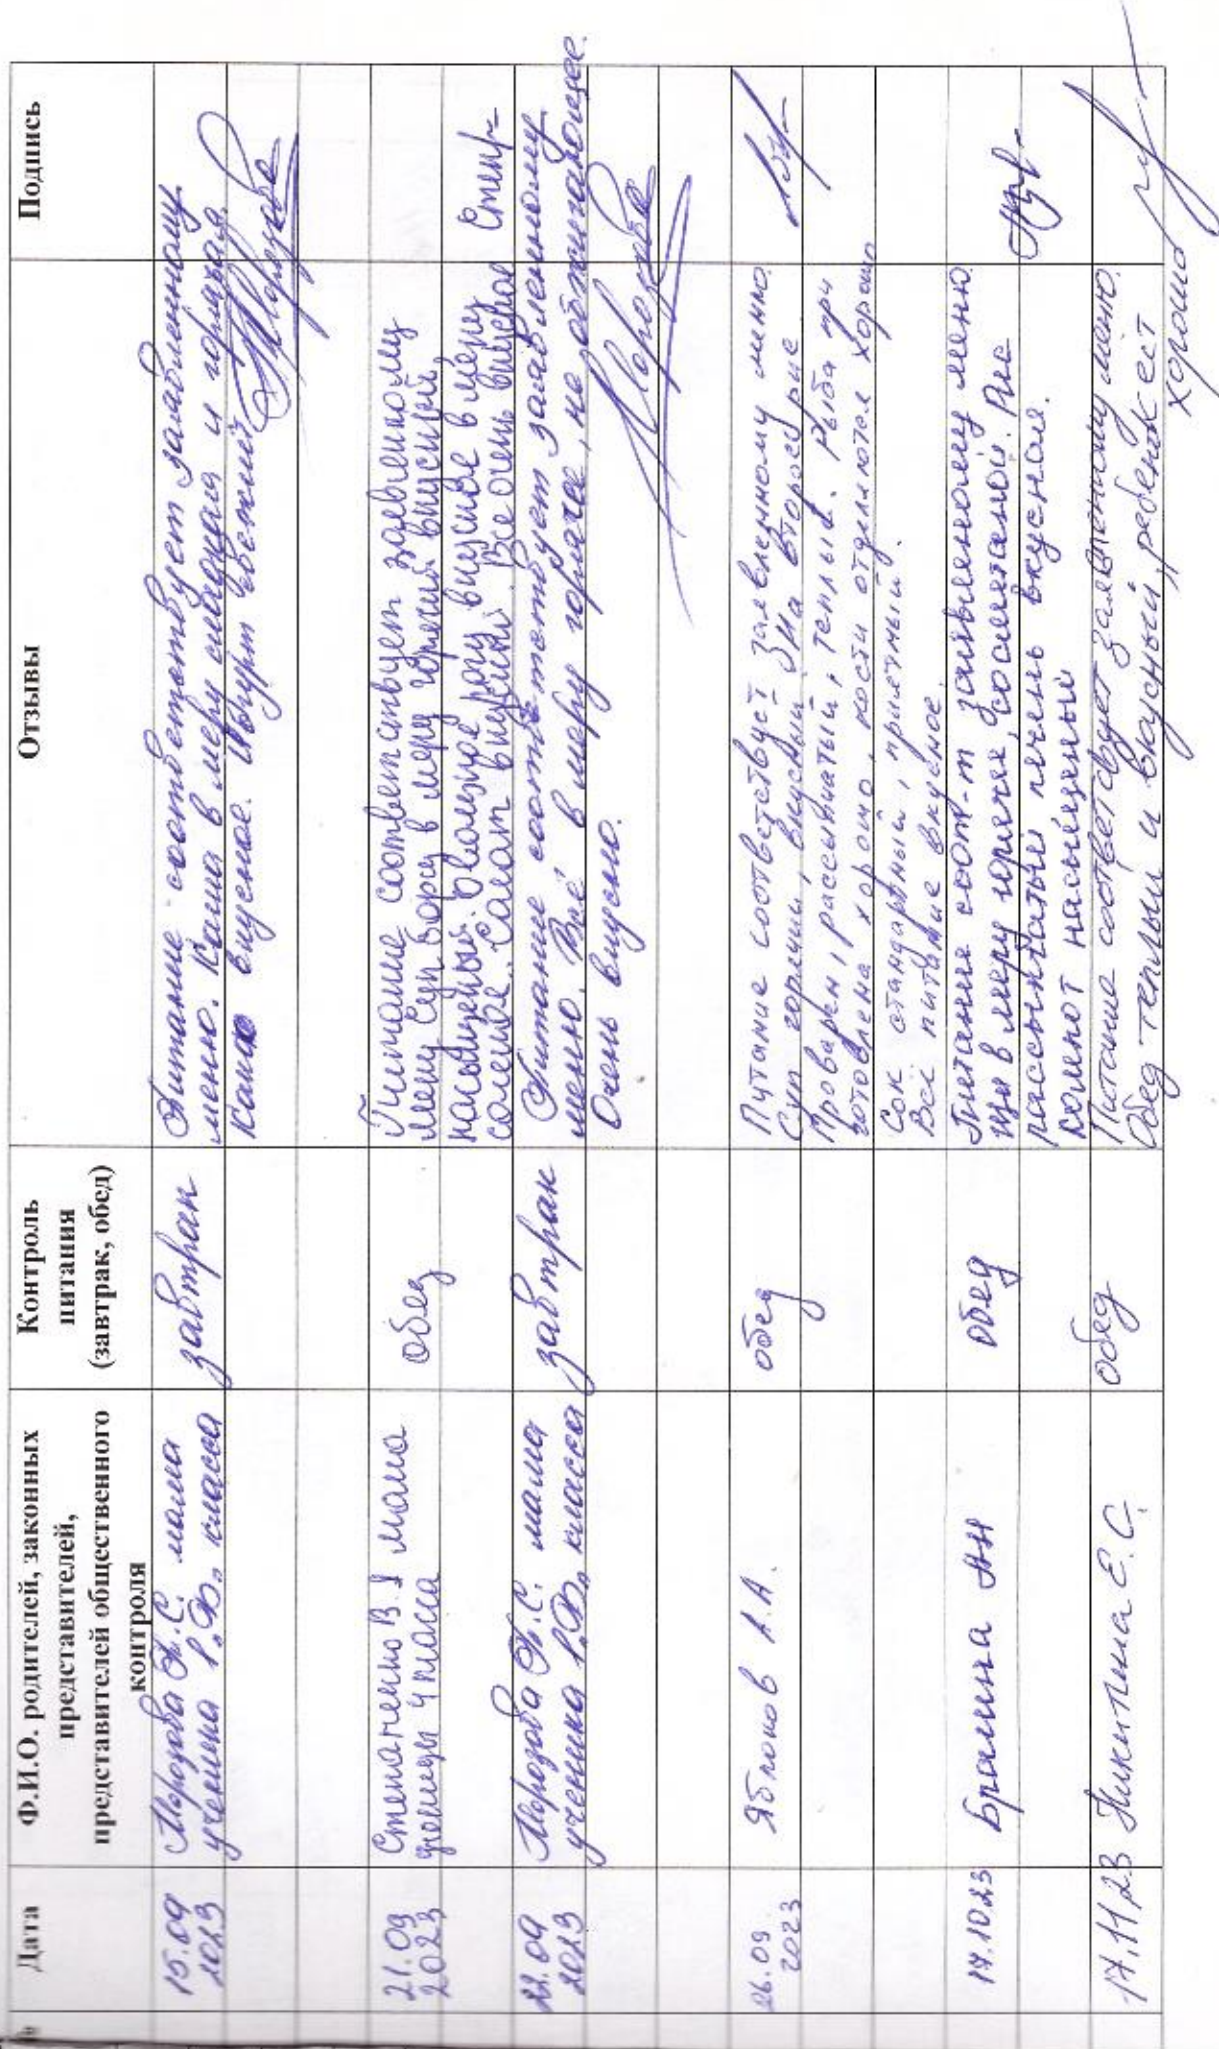 Дата
Ф.И.О. родителей, законных
представителей,
представителей общественного
контроля
Контроль
питания
(завтрак, обед)
Отзывы
Подпись
15.09
2023
Морозова Я.С. мама
ученика 1 "В" класса
завтрак
Питание соответствует заявленному
меню. Каша в меру сладкая и горячая.
Какао вкусное. Йогурт свежий
21.09
2023
Степаненко В.И мама
ученицы 4 класса
обед
Питание соответствует заявленному
меню Суп борщ в меру горячий вкусный,
насыщенный. Овощное рагу вкусное в меру
соленое. Салат вкусный. Все очень вкусное
22.09
2023
Морозова Я.С. мама
ученика 1 "В" класса
завтрак
Питание соответствует заявленному
меню. Всё в меру горячее, не обжигающее.
Очень вкусно.
26.09
2023
Яблоков А.А.
обед
Питание соответствует заявленному меню.
Суп горячий, вкусный. На второе рис
Проварен, рассыпчатый, теплый. Рыба при
готовлена хорошо, кости отделяются хорошо
Сок стандартный, приятный.
Всё питание вкусное.
17.10.23
Брагина АН
обед
Питание соот-т заявленному меню
Щи в меру горячие, со сметаной. Рис
рассыпчатый печень вкусная.
Компот насыщенный
17.11.23
Никитина Е.С.
обед
Питание соответсвует заявленному меню.
Обед теплый и вкусный, ребенок ест
хорошо